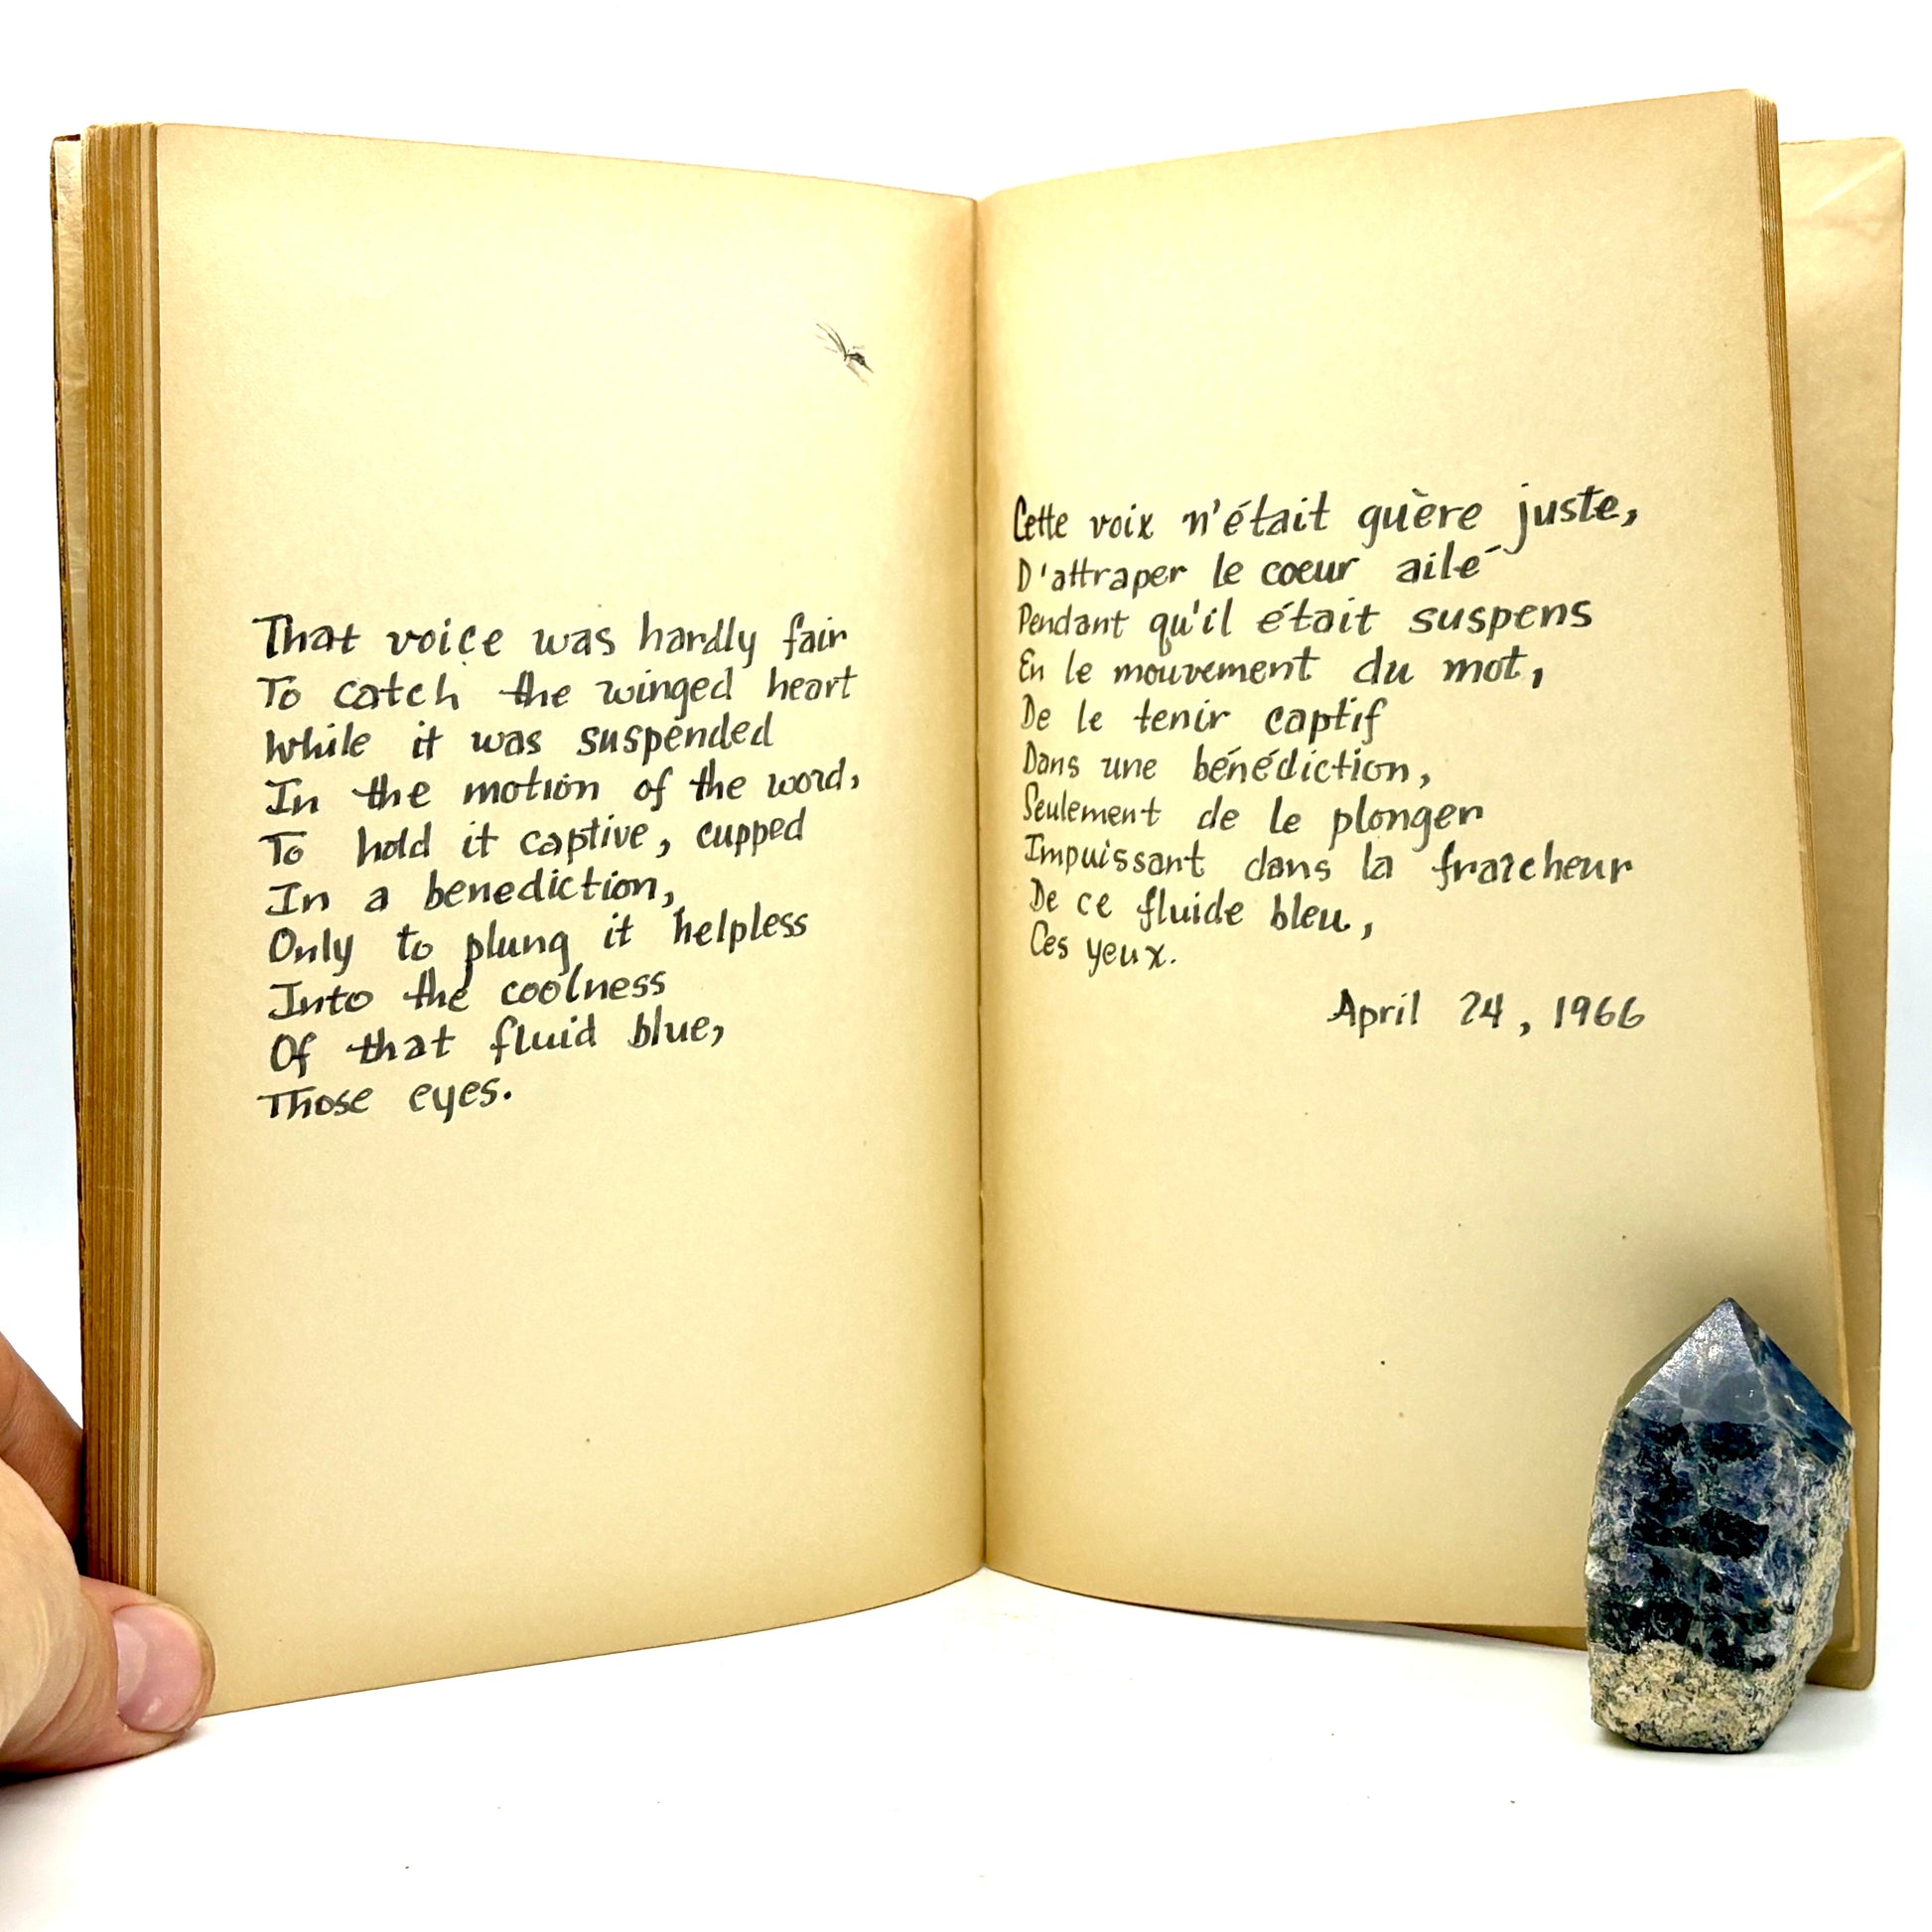 That voice was hardly fair
To catch the winged heart
While it was suspended
In the motion of the word,
To hold it captive, cupped
In a benediction,
Only to plung it helpless
Into the coolness
Of that fluid blue,
Those eyes.
Cette voix n'était guère juste,
D'attraper le coeur ailé
Pendant qu'il était suspens
En le mouvement du mot,
De le tenir captif
Dans une bénédiction,
Seulement de le plonger
Impuissant dans la fraîcheur
De ce fluide bleu,
Ces yeux.
April 24, 1966